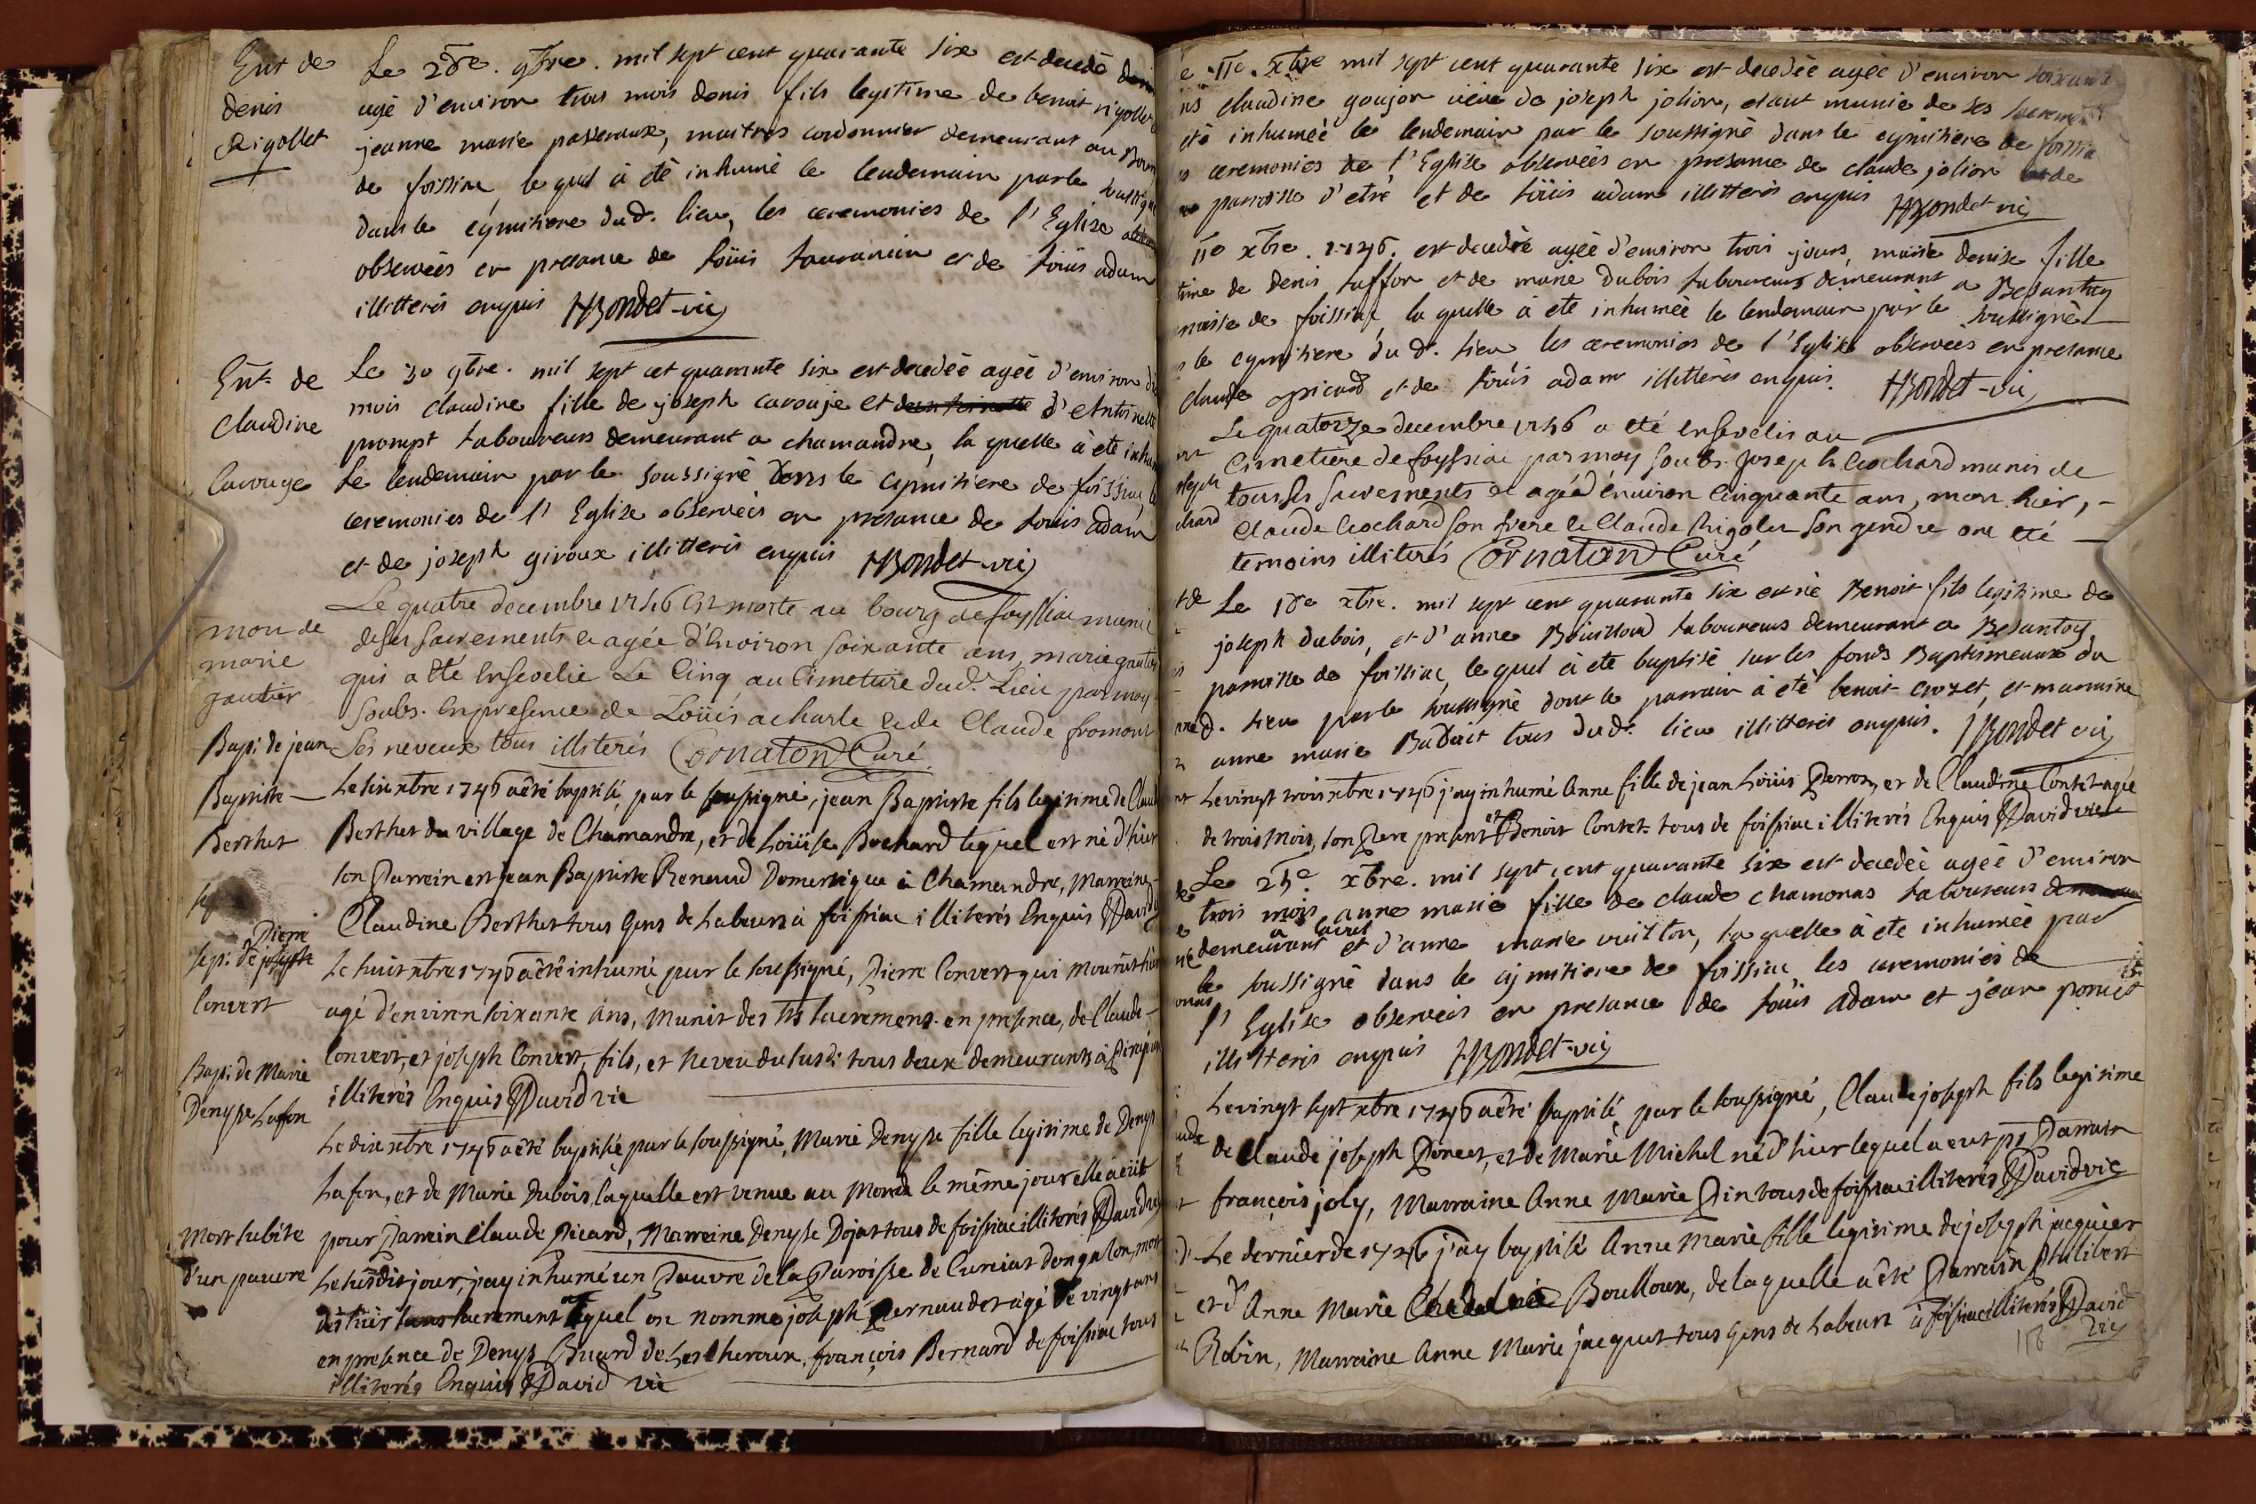 Ent de
denis
Rigollet
Le 28e. 9bre. mil sept cent quarante six est decedé
agé d'environ trois mois denis fils legitime de benoit rigollet
jeanne marie paseraux, maitres cordonnier demeurant au Bourg
de foissiac, le quel à eté inhumé le lendemain par le soussigné
dans le cymitiere dud. lieu, les ceremonies de l'Eglise
observeés en presance de loüis tauranin et de loüis adam
illitterés enquis HBondet-vic
Ent. de
Claudine
Carouge
Le 30 9bre. mil sept cet quarante six est decedeé ageé d'environ
mois claudine fille de joseph carouje et d'Antoinette
prompt laboureurs demeurant a chamandre, la quelle à eté
Le lendemain par le soussigné dans le cymitiere de foissiac
ceremonies de l'Eglise observeés en présance de loüis adam
et de joseph giroux illitterés enquis HBondet-vic
mort de
marie
gautier
Le quatre decembre 1746 est morte au bourg de foyssiac munie
de ses sacrements et agée d'environ soixante ans, marie gautier
qui a été ensevelie Le Cinq au Cimetiere dud. Lieu par moy
soubs. en presence de Loüis acharle et de Claude fromont
ses neveux tous illiterés Cornaton Curé
Bapt. de jean
Baptiste
Berthet
Le six xbre 1746 a été baptisé, par le soussigné, jean Baptiste fils legitime de
Berthet du village de Chamandre, et de Loüise Brochard lequel est né d'hier
son Parrein est jean Baptiste Renaud Domestique à Chamandre, Marreine
Claudine Berthet tous Gens de Labeurs à foissiac illiterés Enquis David
sep. de Pierre
Convert
Le huit xbre 1746 a été inhumé par le soussigné, Pierre Convert qui mourût hier
agé d'environ soixante Ans, Munit des ts sacremens. en presence, de Claude
Convert, et joseph Convert, fils, et Neveu du susd: tous deux demeurants à
illiterés Enquis David vic
Bapt. de Marie
Denyse Lafon
Le dix xbre 1746 a été baptisée par le soussigné, Marie Denyse fille legitime de Denys
Lafon, et de Marie Dubois, laquelle est venue au Monde le même jour elle a eüt
pour Parrein Claude Picard, Marreine Denyse Dojat tous de foissiac illiterés David vic
Mort subite
d'un pauvre
Le susdit jour, j'ay inhumé un Pauvre de la Paroisse de Curciat dongalon, mort
dès hier sans sacrement lequel on nomme joseph Pernaudet agé de vingt ans
en presence de Denys Buard de Lescheroux, françois Bernard de foissiac tous
illiterés Enquis David vic
11e. xbre mil sept cent quarante six est decedeé ageé d'environ soixante
claudine goujon veve de joseph jolion, etant munie de ses sacrements
eté inhumeé le lendemain par le soussigné dans le cymitiere de foissiac
ceremonies de l'Eglise observeés en presance de claude jolion et de
parroisse d'etré et de loüis adam illitterés enquis HBondet vic
11e xbre. 1746. est decedeé ageé d'environ trois jours, marie denise fille
time de denis laffon et de marie dubois laboureurs demeurant a Besantoy
roisse de foissiac, la quelle à eté inhumeé le lendemain par le soussigné
le cymitiere du d. lieu, les ceremonies de l'Eglise observeés en presance
claude picard et de loüis adam illitterés enquis. HBondet-vic
Le quatorze decembre 1746 a eté ensevelis au
Cimetiere de foyssiac par moy soubs. joseph Cochard munis de
tous ses sacrements et agéd'environ Cinquante ans, mort hier,
Claude Cochard son frere et Claude Rigolet son gendre ont eté
temoins illiterés Cornaton Curé
Le 18e xbre. mil sept cent quarante six est né Benoit fils legitime de
joseph dubois, et d'anne Bouilloud laboureurs demeurant a Besantoy,
parroisse de foissiac, le quel à eté baptisé sur les fonds Baptismeaux du
d. lieu par le soussigné dont le parrain à eté benoit crozet, et marraine
anne marie tous dud. lieu illitterés enquis. HBondet vic
Le vingt trois xbre 1746 j'ay inhumé Anne fille de jean Loüis Perron, et de Claudine Contet agée
de trois Mois, son Pere present et Benoit Contet tous de foissiac illiterés Enquis David vic
Le 25e. xbre. mil sept cent quarante six est decedeé ageé d'environ
trois mois anne marie fille de claude chamonas laboureurs
demeurant a et d'anne marie vuitton, la quelle à eté inhumeé par
le soussigné dans le cymitiere de foissiac les ceremonies de
l'Eglise observeés en presance de loüis adam et jean poncet
illitterés enquis HBondet-vic
Le vingt sept xbre 1746 a été baptisé, par le soussigné, Claude joseph fils legitime
de Claude joseph Poncet, et de Marie Michel né d'hier lequel a eut pr Parrain
françois joly, Marraine Anne Marie Pin tous de foissiac illiterés David vic
Le dernier de 1746 j'ay baptisé Anne Marie fille legitime de joseph jacquier
et d'Anne Marie Boulloux, de laquelle a été Parrein Philibert
Robin, Marreine Anne Marie jacquet tous Gens de Labeurs à foissiac illiterés David
vic